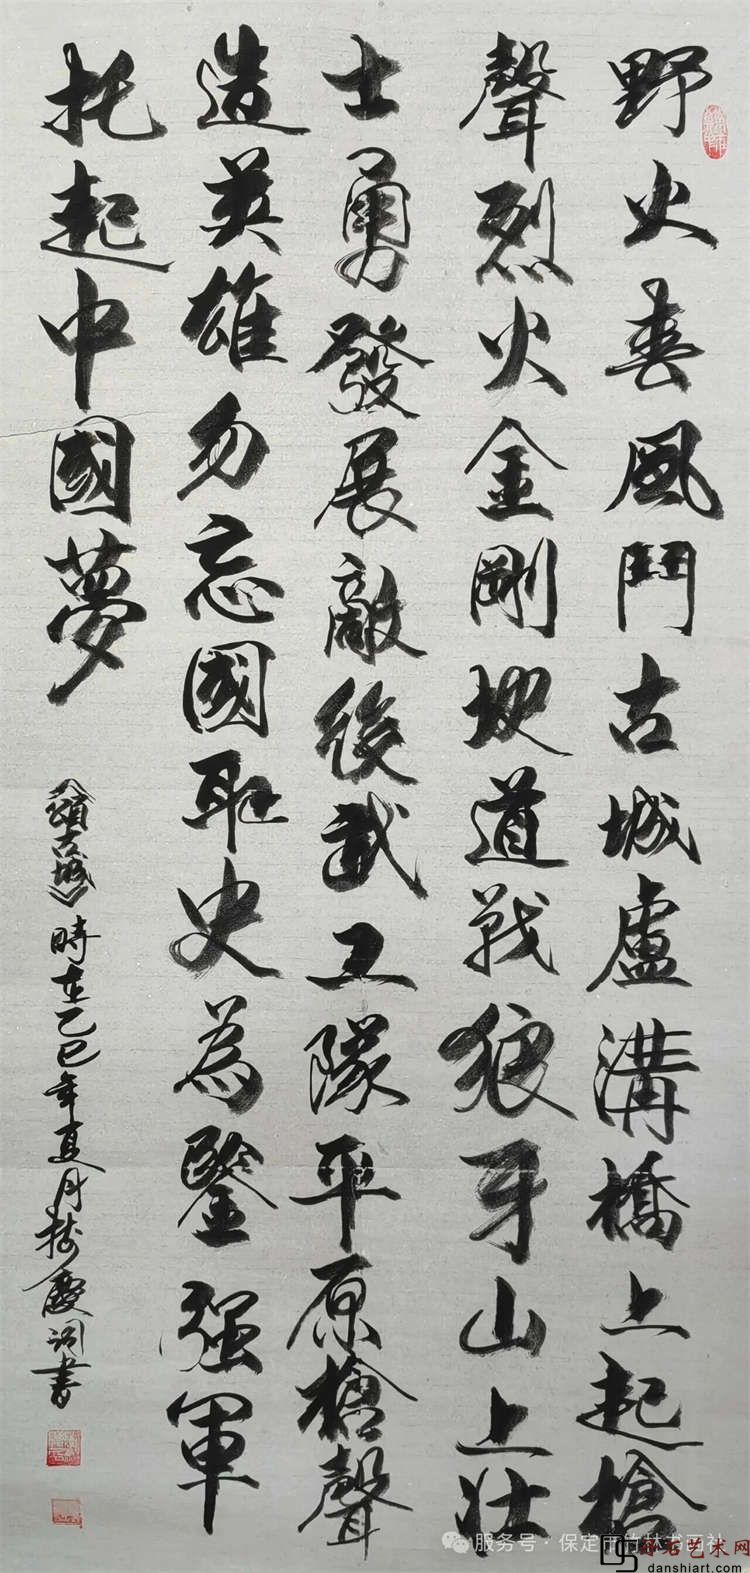 野火春風鬥古城盧溝橋上起槍
聲烈火金剛地道戰狼牙山上壯
士勇發展敵後武工隊平原槍聲
造英雄勿忘國恥史為鑒强軍
托起中國夢
《頌古城》時在乙巳年夏月 慶詞書
服务号·保定市竹林书画社
艺术网
danshiart.com